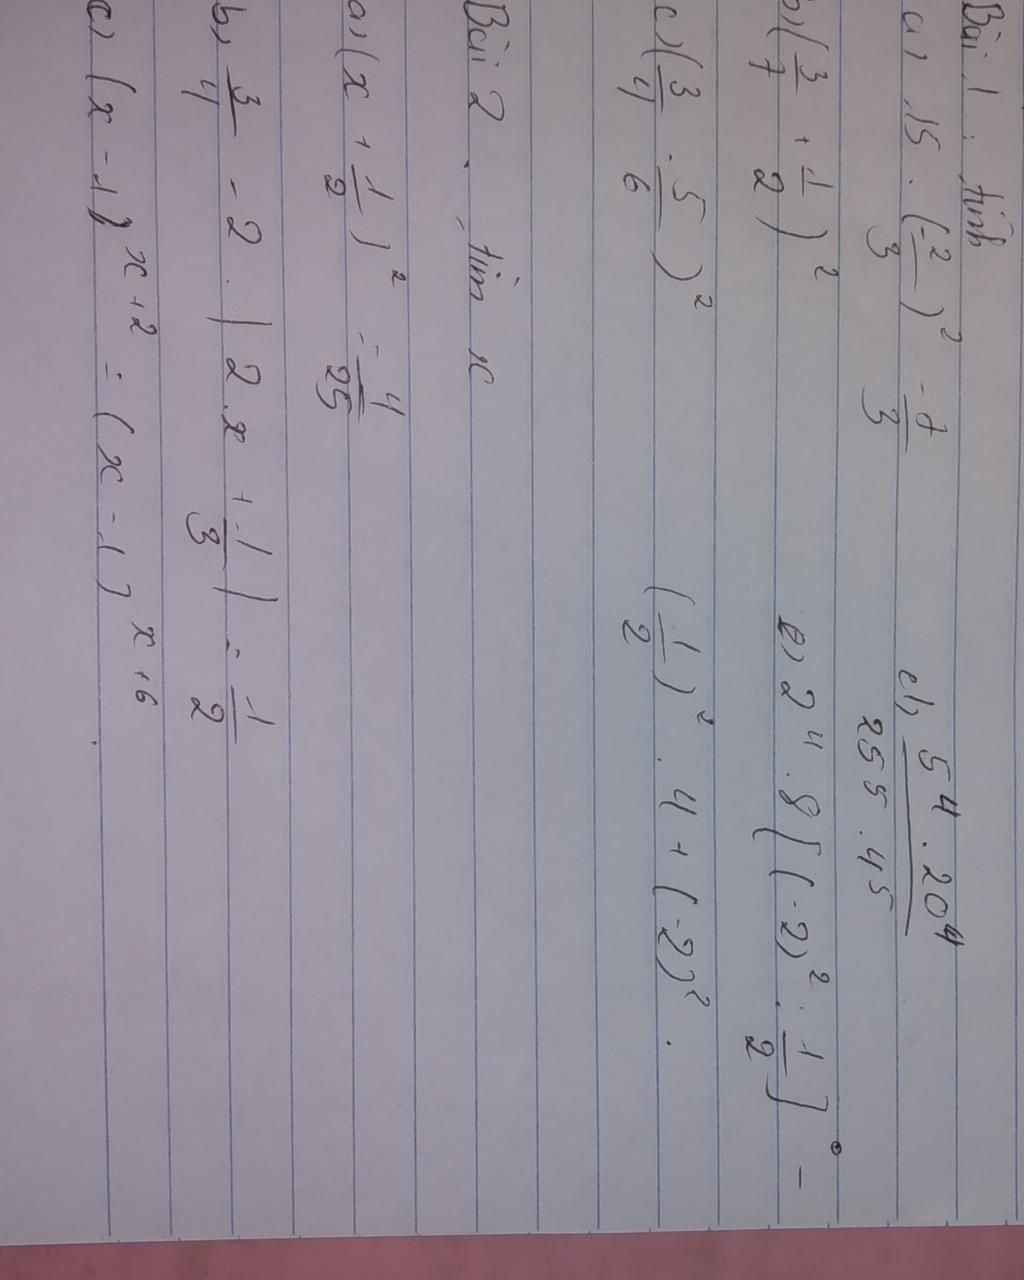 Bài 1 : tính
a) 15 . (-2/3)² - 7/3
d) 5⁴ . 20⁴ / 25⁵ . 4⁵
b) (3/7 + 1/2)²
e) 2⁴ . 8 [(-2)² : 1/2]⁰ -
(1/2)² . 4 + (-2)² .
c) (3/4 - 5/6)²
Bài 2 . tìm x
a) (x + 1/2)² = 4/25
b) 3/4 - 2 . | 2x + 1/3 | = 1/2
c) (x - 1)ˣ⁺² = (x - 1)ˣ⁺⁶